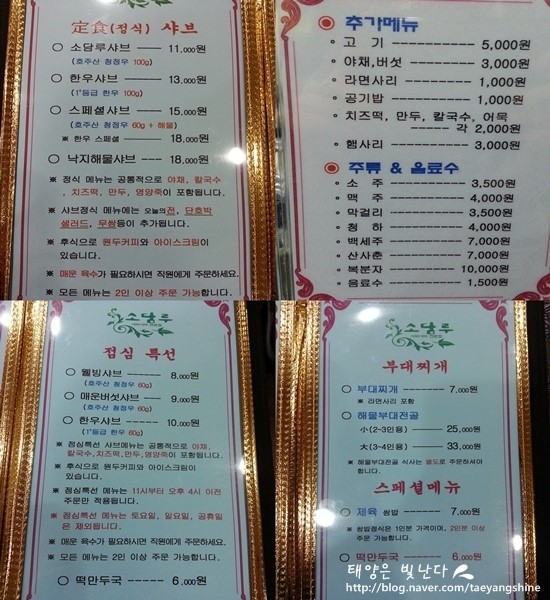 定食(정식) 샤브
○ 소담루샤브 —— 11,000원
(호주산 청정우 100g)
○ 한우샤브 ——— 13,000원
(1⁺등급 한우 100g)
○ 스페셜샤브 —— 15,000원
(호주산 청정우 60g + 해물)
※ 한우 스페셜 ——— 18,000원
○ 낙지해물샤브 --- 18,000원
※ 정식 메뉴는 공통적으로 야채, 칼국수
, 치즈떡, 만두, 영양죽이 포함됩니다.
※ 샤브정식 메뉴에는 오늘의전, 단호박
샐러드, 무쌈등이 추가됩니다.
※ 후식으로 원두커피와 아이스크림이
있습니다.
※ 매운 육수가 필요하시면 직원에게 주문하세요.
※ 모든 메뉴는 2인 이상 주문 가능합니다.
◉ 추가메뉴
∘ 고 기 ----------- 5,000원
∘ 야채,버섯 --------- 3,000원
∘ 라면사리 ---------- 1,000원
∘ 공기밥 ----------- 1,000원
∘ 치즈떡, 만두, 칼국수, 어묵
------ 각 2,000원
∘ 햄사리 ----------- 3,000원
◉ 주류 & 음료수
∘ 소 주 ----------- 3,500원
∘ 맥 주 ----------- 4,000원
∘ 막걸리 ----------- 3,500원
∘ 청 하 ----------- 4,000원
∘ 백세주 ----------- 7,000원
∘ 산사춘 ----------- 7,000원
∘ 복분자 ---------- 10,000원
∘ 음료수 ----------- 1,500원
소담루
점심 특선
○ 웰빙샤브 ——— 8,000원
(호주산 청정우 60g)
○ 매운버섯샤브 --- 9,000원
(호주산 청정우 60g)
○ 한우샤브 ---- 10,000원
(1⁺등급 한우 60g)
※ 점심특선 샤브메뉴는 공통적으로 야채,
칼국수,치즈떡,만두,영양죽이 포함됩니다.
※ 후식으로 원두커피와 아이스크림이
있습니다.
※ 점심특선 메뉴는 11시부터 오후 4시 이전
주문만 적용됩니다.
※ 점심특선 메뉴는 토요일, 일요일, 공휴일
은 제외됩니다.
※ 매운 육수가 필요하시면 직원에게 주문하세요.
※ 모든 메뉴는 2인 이상 주문 가능합니다.
○ 떡만두국 ——— 6,000원
소담루
부대찌개
○ 부대찌개 ------ 7,000원
※ 라면사리 포함
○ 해물부대전골
小(2~3인용) ---- 25,000원
大(3~4인용) ---- 33,000원
※ 해물부대전골 식사는 별도로 주문하셔야
합니다.
스페셜메뉴
○ 제육 쌈밥 ----- 7,000원
※ 쌈밥정식은 1인분 가격이며, 2인분 이상
주문 가능합니다.
○ 떡만두국 ----- 6,000원
태양은 빛난다
http://blog.naver.com/taeyangshine